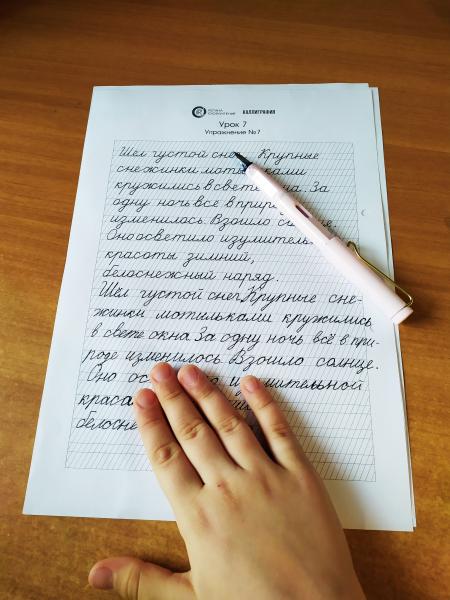 КАЛЛИГРАФИЯ
Урок 7
Упражнение №7
Шёл густой Крупные
снежинки
кружились в свете За
одну ночь всё в
изменилось. Взошло
Оно осветило
красоты зимний,
белоснежный наряд.
Шёл густой снег. Крупные сне-
жинки мотыльками кружились
в свете окна. За одну ночь всё в при-
роде изменилось. Взошло солнце.
Оно